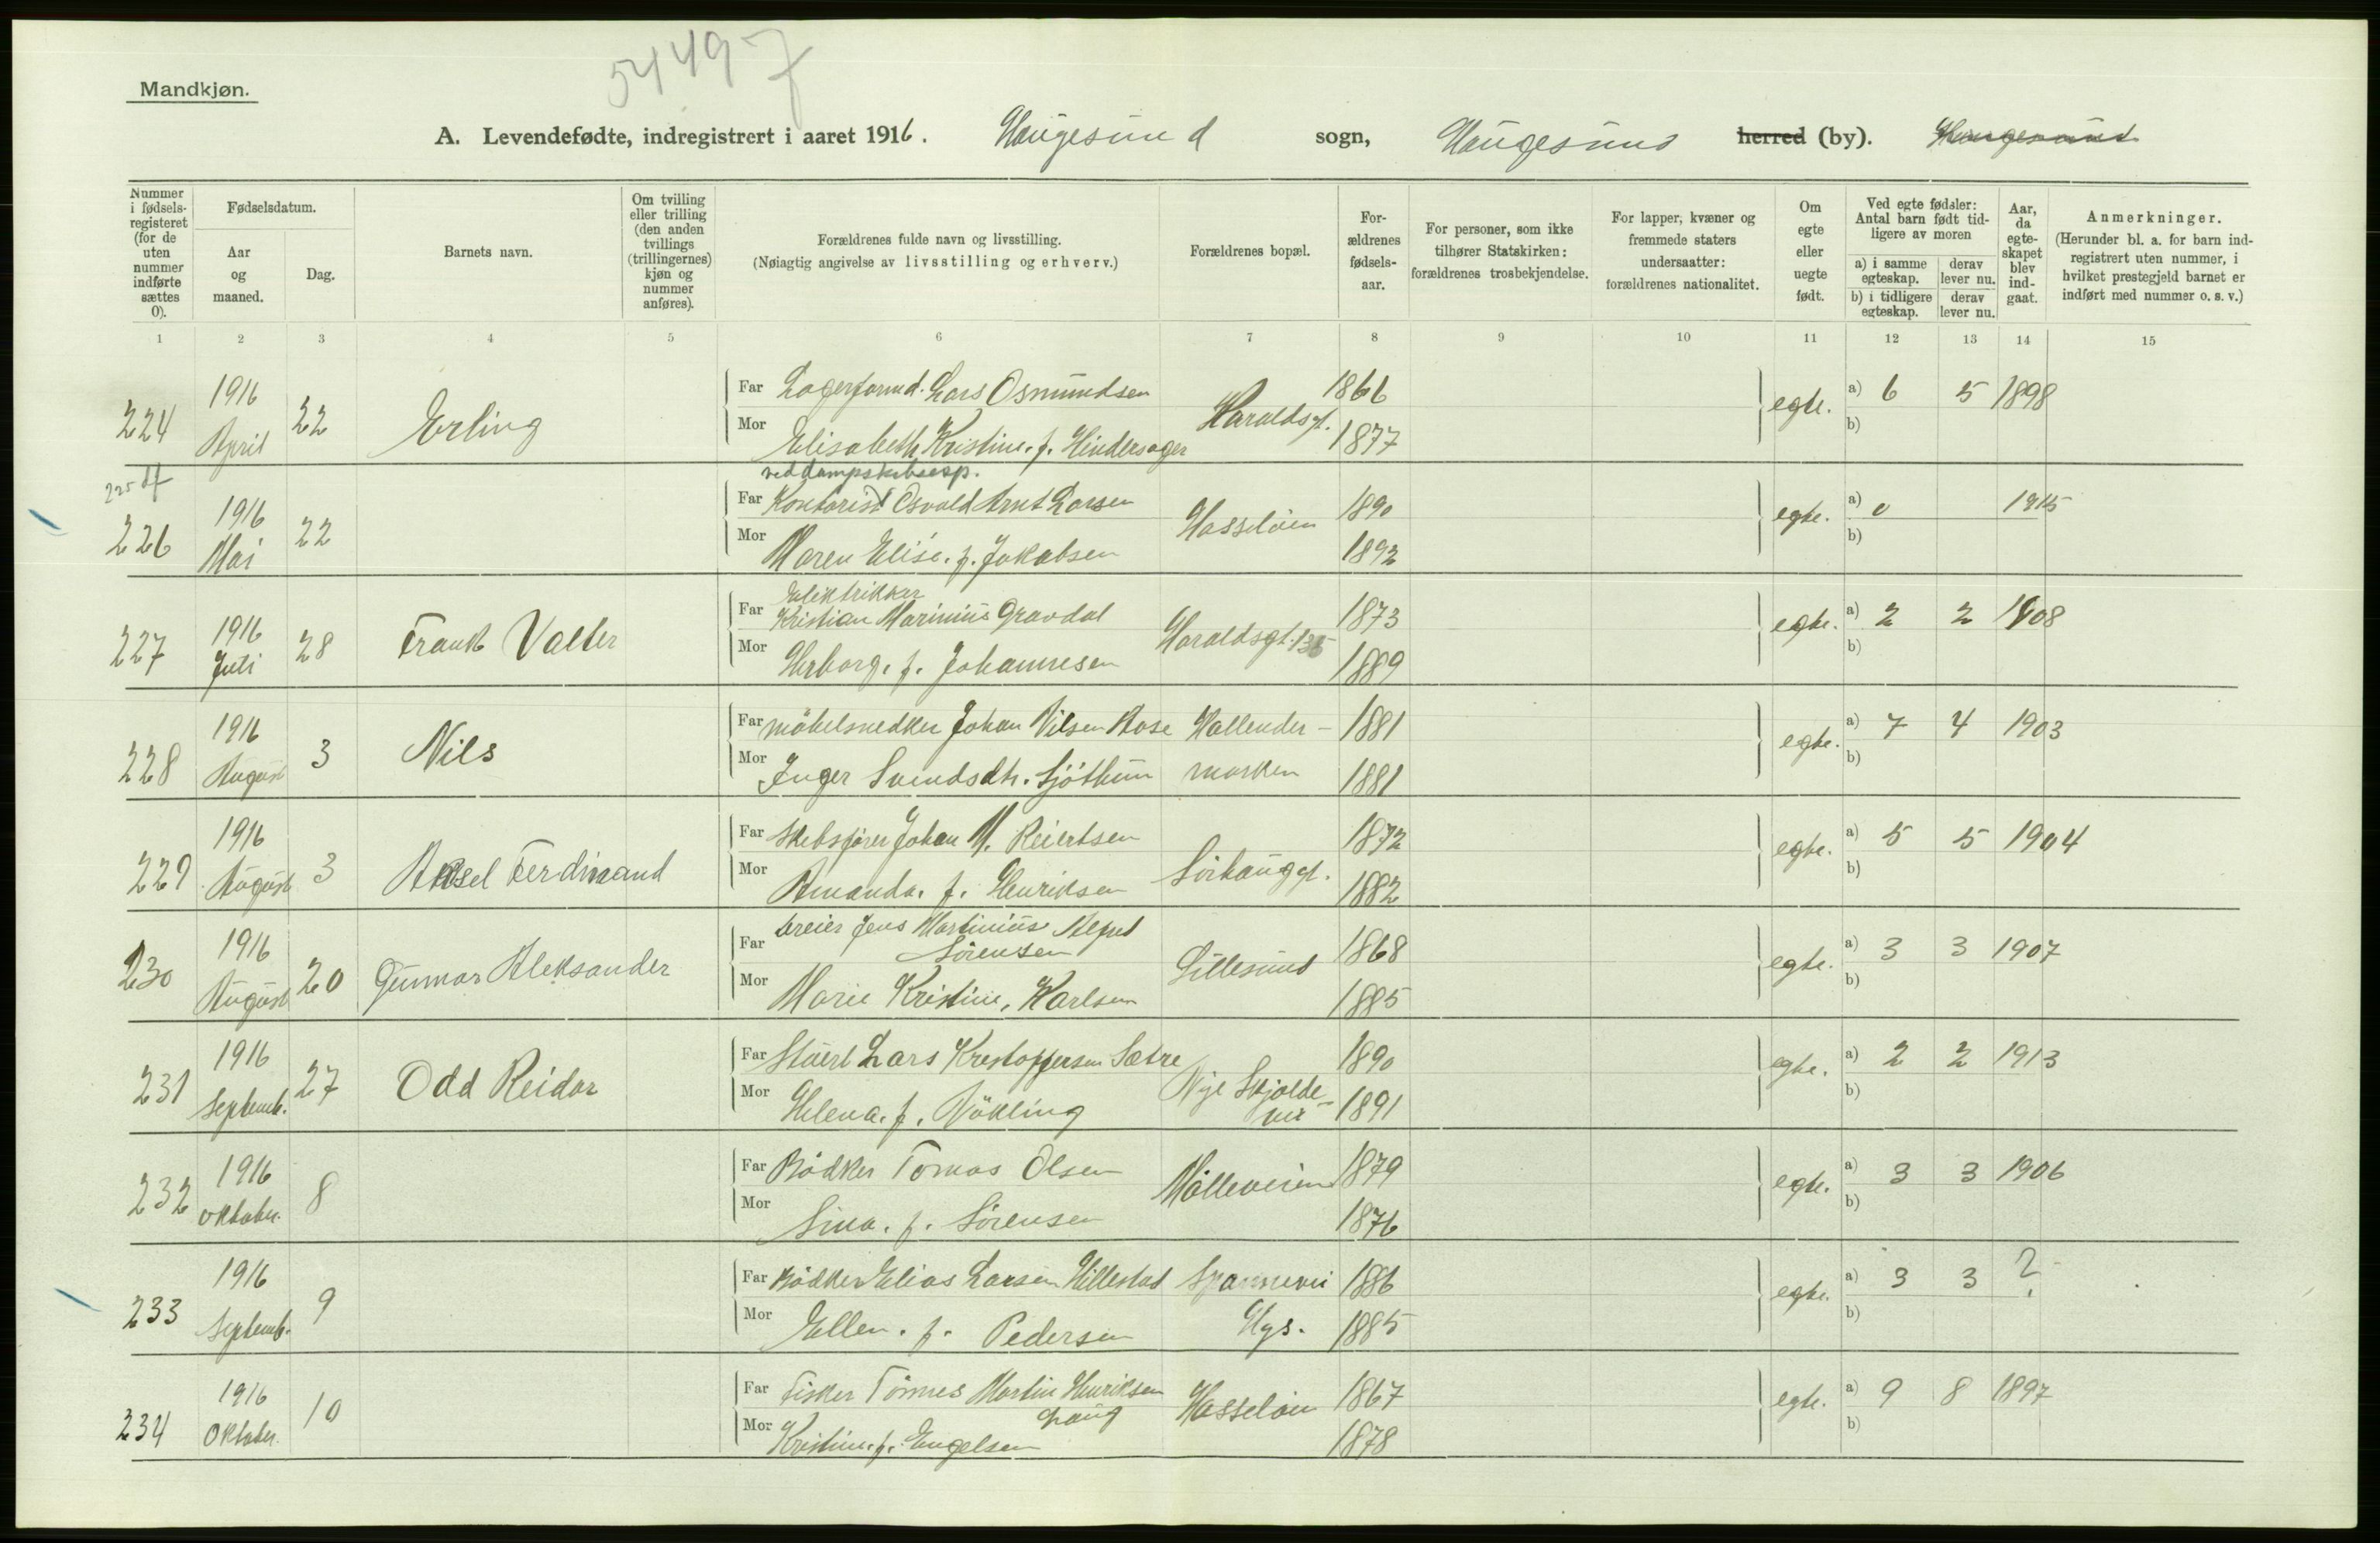 54497
Mandkjøn.
A. Levendefødte, indregistrert i aaret 1916. Haugesund sogn, Haugesund herred (by). Haugesund
Nummer i fødsels-registeret (for de uten nummer indførte sættes 0).
Fødselsdatum.
Aar og maaned.
Dag.
Barnets navn.
Om tvilling eller trilling (den anden tvillings (trillingernes) kjøn og nummer anføres).
Forældrenes fulde navn og livsstilling.
(Nøiagtig angivelse av livsstilling og erhverv.)
Forældrenes bopæl.
For-ældrenes fødsels-aar.
For personer, som ikke tilhører Statskirken: forældrenes trosbekjendelse.
For lapper, kvæner og fremmede staters undersaatter: forældrenes nationalitet.
Om egte eller uegte født.
Ved egte fødsler: Antal barn født tid-ligere av moren
a) i samme egteskap.
derav lever nu.
b) i tidligere egteskap.
derav lever nu.
Aar, da egte-skapet blev ind-gaat.
Anmerkninger.
(Herunder bl. a. for barn ind-registrert uten nummer, i hvilket prestegjeld barnet er indført med nummer o. s. v.)
1 2 3 4 5 6 7 8 9 10 11 12 13 14 15
224 1916 April 22 Erling
Far Lagerformd. Lars Osmundsen Haraldsgt. 1866 egte. a) 6 5 1898
Mor Elisabeth Kristine. f. Hindersager 1877 b)
225 df
226 1916 Mai 22
ved dampskibsexp.
Far Kontorist Osvald Arnt Larsen Hasseløen 1890 egte. a) 0 1915
Mor Maren Elise. f. Jakobsen 1892 b)
227 1916 Juli 28 Frank Valter
Elektrikker
Far Kristian Marinius Gravdal Haraldsgt. 135 1873 egte. a) 2 2 1908
Mor Herborg. f. Johannesen 1889 b)
228 1916 August 3 Nils
Far møbelsnedker Johan Nilsen Aase Hallender- 1881 egte. a) 7 4 1903
Mor Inger Svendsdtr. Sjøthun marken 1881 b)
229 1916 August 3 Aksel Ferdinand
Far Skibsfører Johan M. Reiertsen Sørhauggt. 1872 egte. a) 5 5 1904
Mor Amanda. f. Henriksen 1882 b)
230 1916 August 20 Gunnar Aleksander
Far Dreier Jens Martinius Alfred Sørensen Lillesund 1868 egte. a) 3 3 1907
Mor Marie Kristine, Karlsen 1885 b)
231 1916 Septemb. 27 Odd Reidar
Far Stuert Lars Kristoffersen Sætre Nye Skjolde- 1890 egte. a) 2 2 1913
Mor Helena. f. Nökling vei 1891 b)
232 1916 Oktober. 8
Far Bødker Tomas Olsen Mølleveien 1879 egte. a) 3 3 1906
Mor Sina. f. Sørensen 1876 b)
233 1916 Septemb. 9
Far Bødker Elias Larsen Hillestad Spannevei 1886 egte. a) 3 3 ?
Mor Ellen. f. Pedersen Hgs. 1885 b)
234 1916 Oktober. 10
Far Fisker Tønnes Martin Henriksen Hasseløen 1867 egte. a) 9 8 1897
Haug
Mor Kristine. f. Engelsen 1878 b)